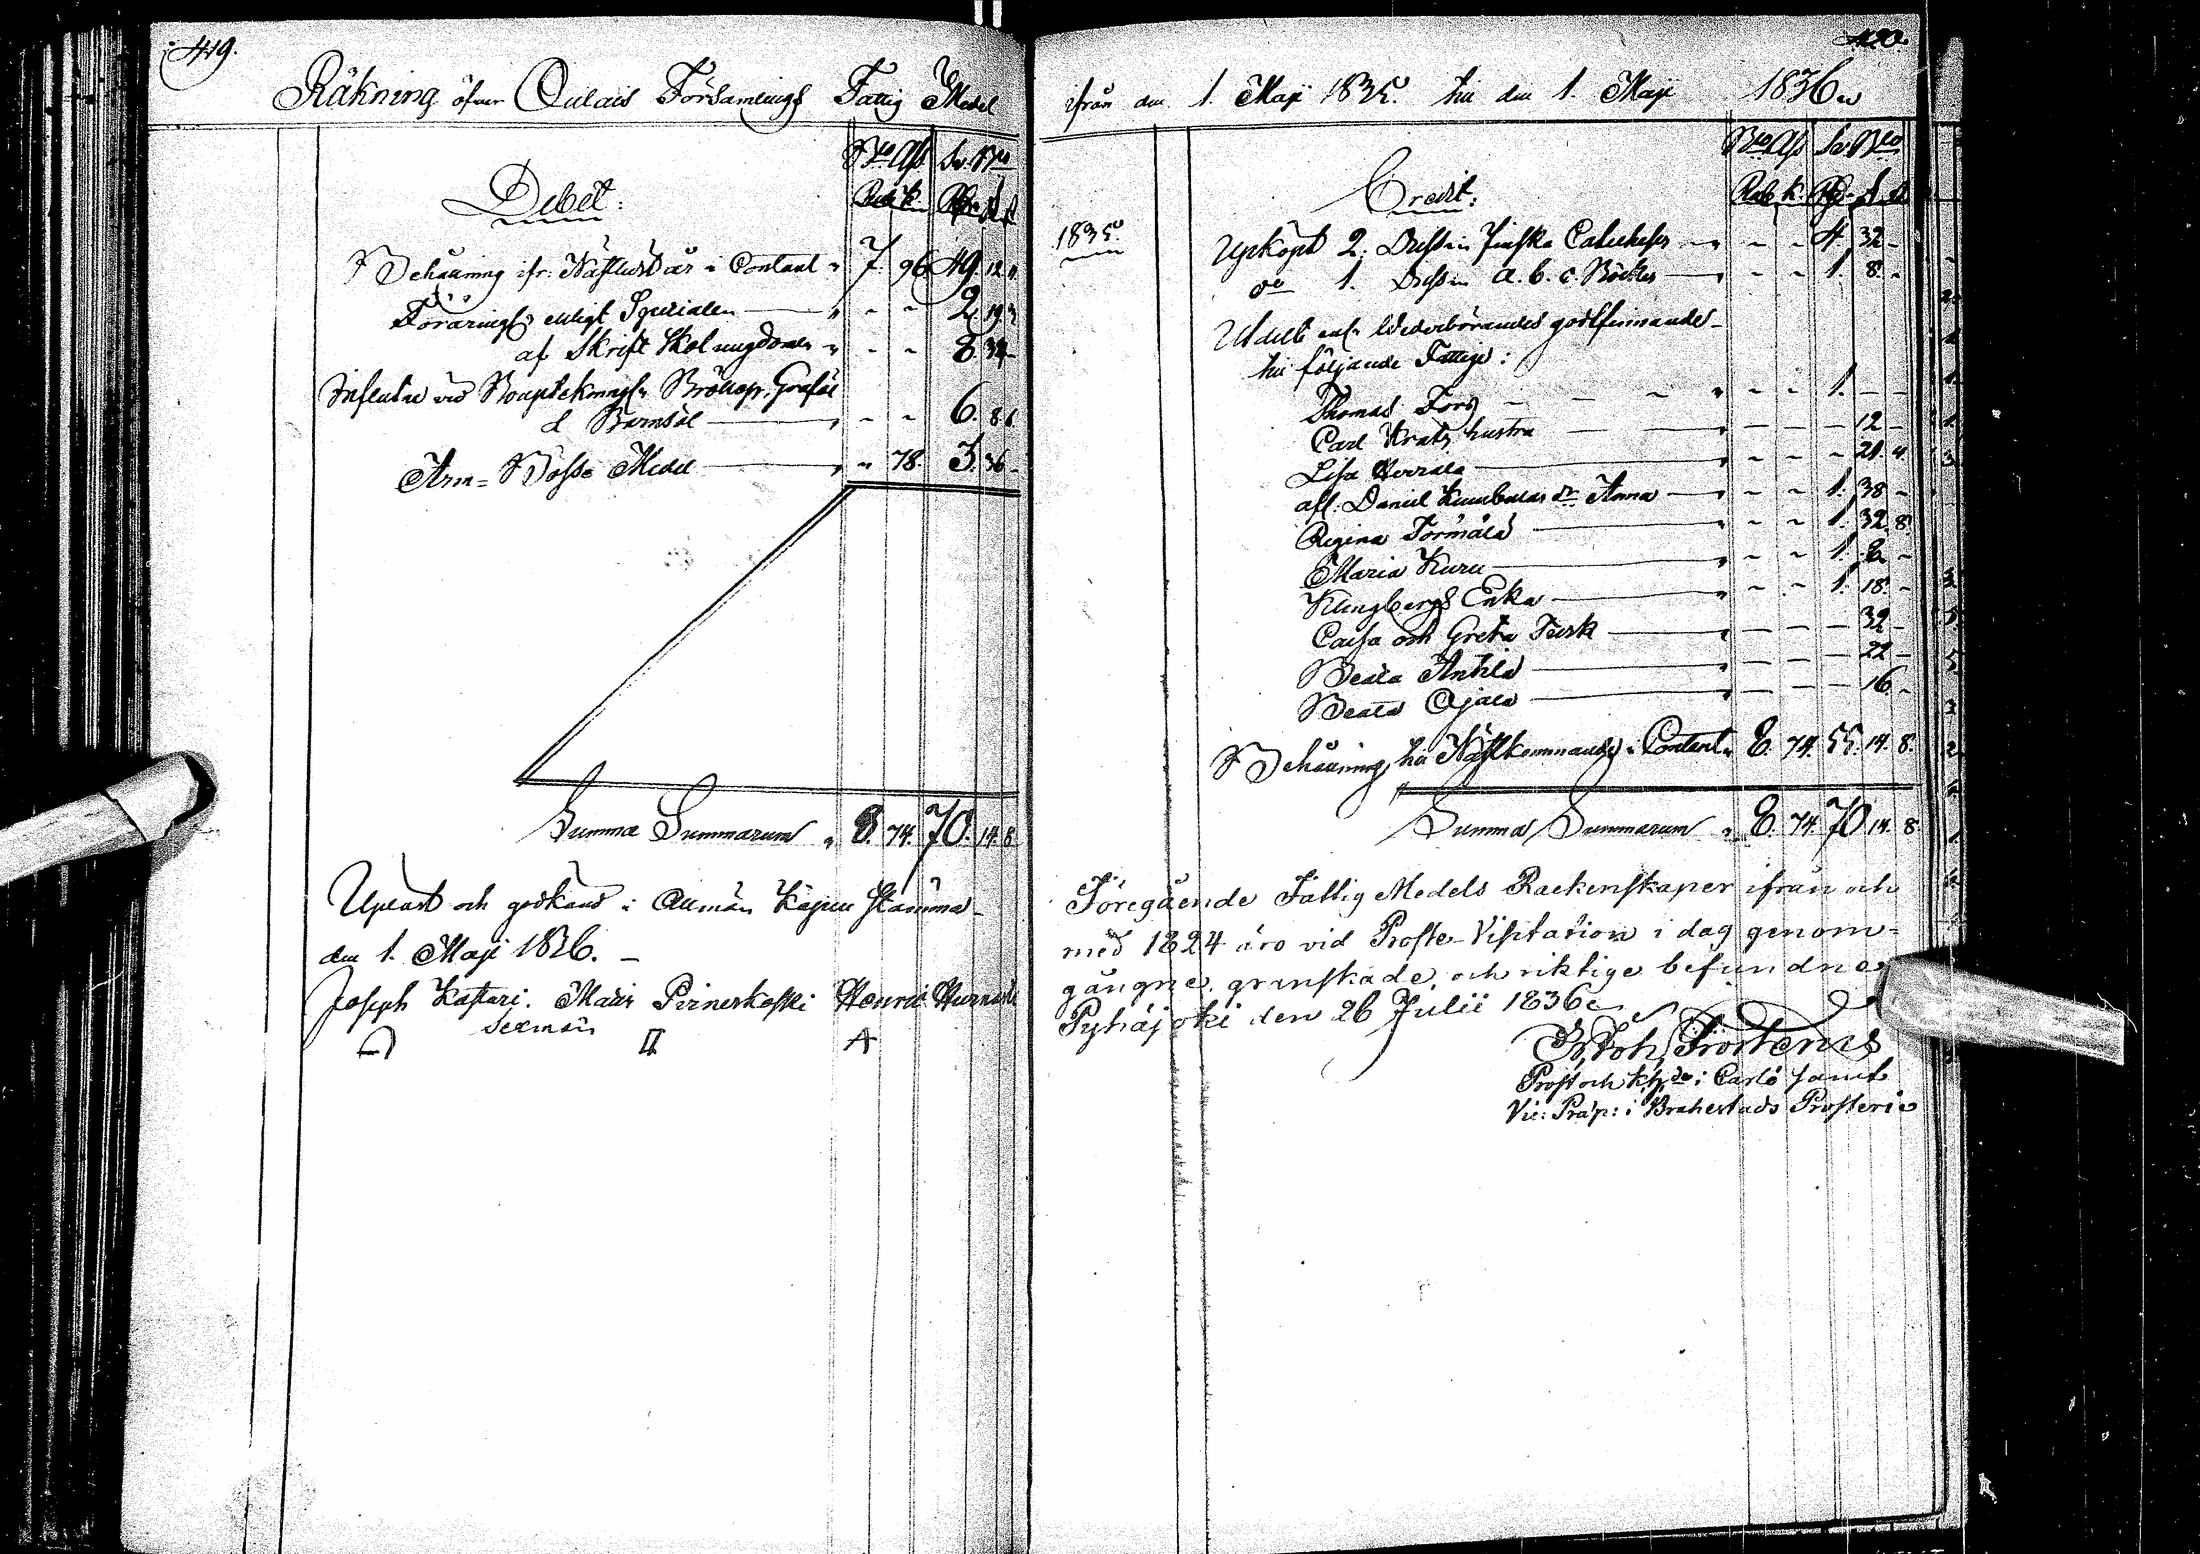 419.
Räkning öfver Oulais Församlings Fattig Medel
Bco Ass Sv. Bco
Debet:
Rub. K.
Behållning ifr. Nästledit år i Contant " 7. 96 49. 12 "
Föräringar enligt Specialen " - - 2. 19
af Skrift Skol ungdomen " - - 8. 32 -
Influtne vid Bröllop, Graföl
& Barnsöl - - 6. 8
Arm-Bösse Medel " " 78. 3. 36 -
Summa Summarum " 8. 74. 70. 14. 8
Upläst och godkänd i Allmän Kyrko Stämma
den 1. Maji 1836. -
Joseph Kastari. Matts Pirneskoski Henric
Sexman
420.
ifrån den 1. Maji 1835. till den 1. Maji 1836.
Bco Ass Sv. Bco
Credit:
Rub K.
1835.
Upköpt 2. Dussin Finska Catecheser " - - 4. 32 -
do 1. Dussin A. b. c. Böcker " - - 1. 8. -
Utdelt enl. Wederbörandes godtfinnande
till följande Fattige:
Thomas Fors " - - 1. - -
Carl Krats hustru - - - 12 -
Lisa " - - - 21. 4
afl. Daniel dr Anna " - - 1. 38 -
Regina Törmälä " - - 1. 32. 8
Maria Kuru " - - 1. 2 -
Klingbergs Enka " - - 1. 18. -
Caisa och Greta Tusk - - - 32 -
Beata Anttila - - - 22 -
Beata Ojala - - - 16 -
Behållning till Nästkommande i Contant " 8. 74. 55. 14. 8.
Summa Summarum " 8. 74. 70 14. 8.
Föregående Fattig Medels Räckenskaper ifrån och
med 1824 äro vid Proste-Visitation i dag genom-
gångne, granskade, och riktige befundne.
Pyhäjoki den 26 Julii 1836.
Joh. Frosterus
Prost och Khde i Carlö samt
Vic: Præp: i Brahestads Prosteri